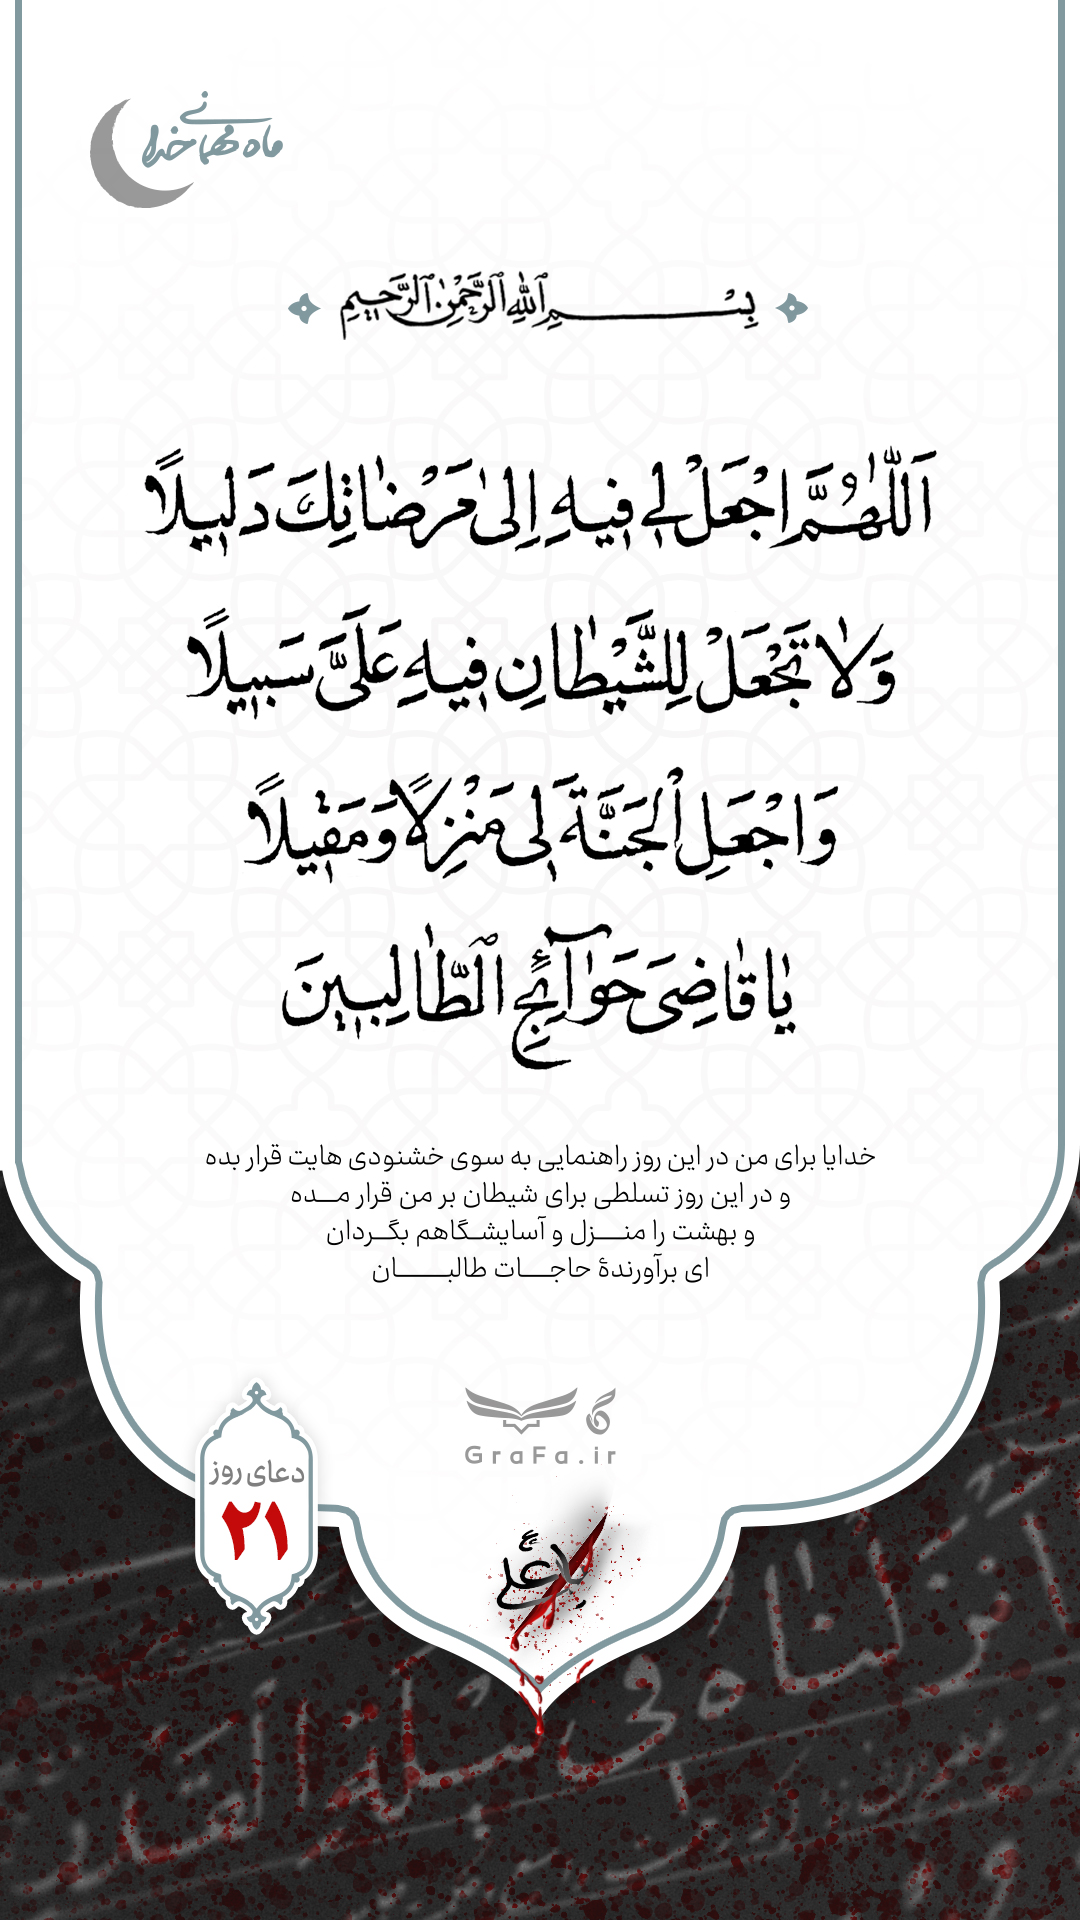 ماه مهمانی خدا
بِسْمِ ٱللّٰهِ ٱلرَّحْمٰنِ ٱلرَّحِیمِ
اَللّٰهُمَّ اجْعَلْ لِی فِیهِ اِلىٰ مَرْضَاتِكَ دَلِیلًا
وَلَا تَجْعَلْ لِلشَّیْطَانِ فِیهِ عَلَیَّ سَبِیلًا
وَاجْعَلِ الْجَنَّةَ لِی مَنْزِلًا وَمَقِیلًا
یَا قَاضِیَ حَوَآئِجِ ٱلطَّالِبِینَ
خدایا برای من در این روز راهنمایی به سوی خشنودی هایت قرار بده
و در این روز تسلطی برای شیطان بر من قرار مــده
و بهشت را منــزل و آسایشگاهم بگــردان
ای برآورندهٔ حاجــات طالبــــان
GraFa.ir
دعای روز
۲۱
یا علی
انزلناه فی لیلة القدر